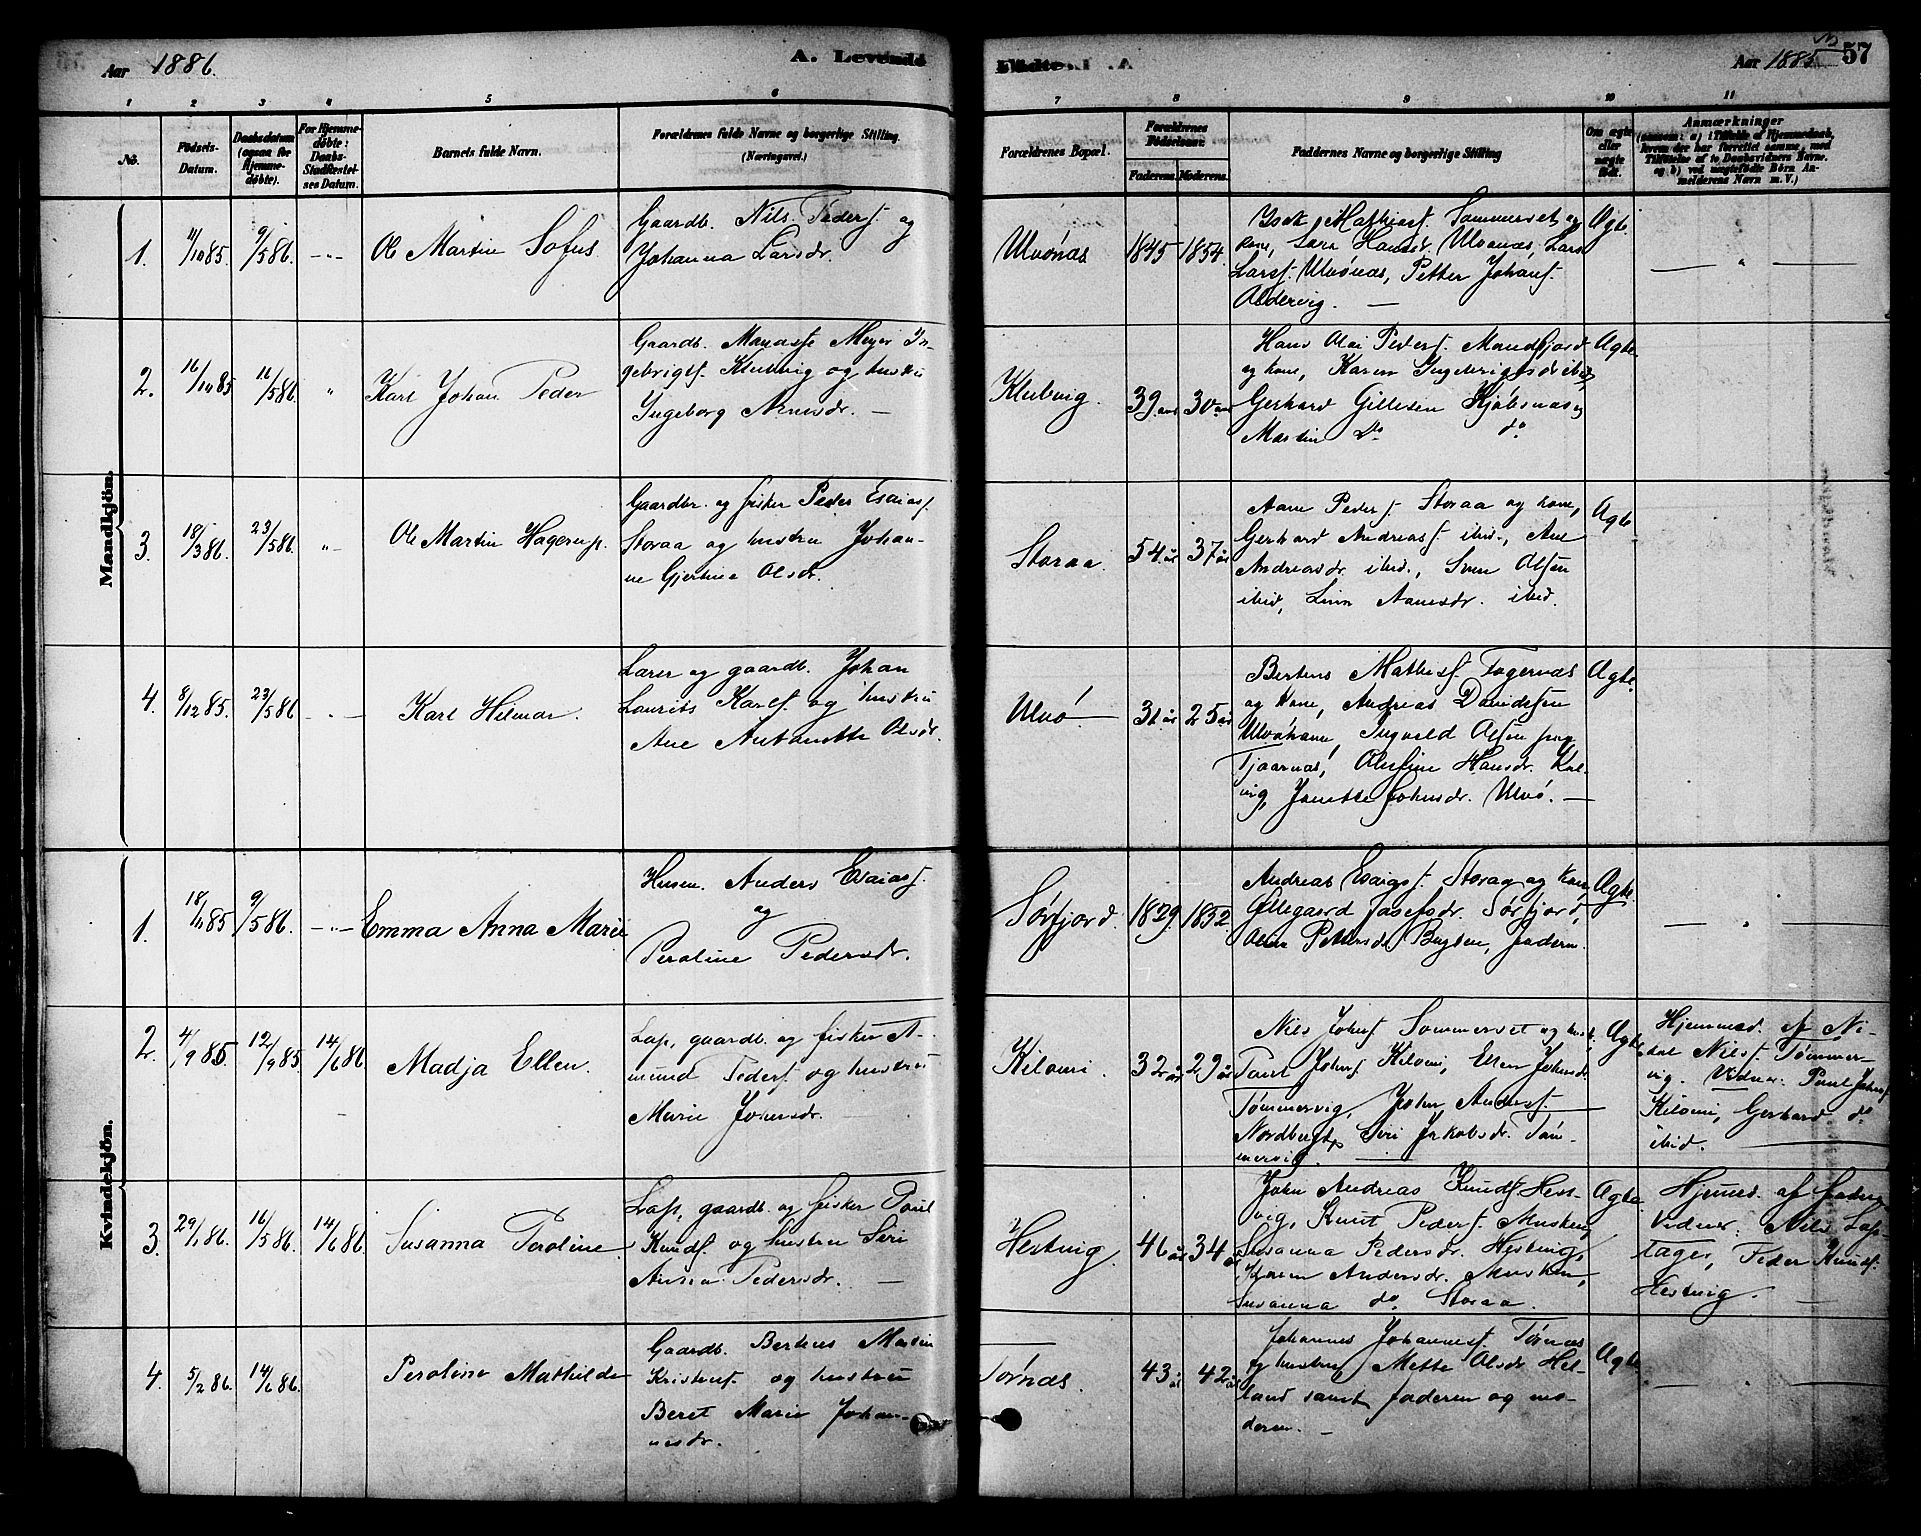 Aar 1886.
A. Levende
Fødte.
Aar 1885
57
1 2 3 4 5 6 7 8 9 10 11
No.
Fødsels-
Datum.
Daabsdatum
(ogsaa for
Hjemme-
døbte).
For Hjemme-
døbte:
Daabs-
Stadfæstel-
ses Datum.
Barnets fulde Navn.
Forældrenes fulde Navne og borgerlige Stilling.
(Næringsvei.)
Forældrenes Bopæl.
Forældrenes
Fødselsaar.
Faderens. Moderens.
Faddernes Navne og borgerlige Stilling
Om ægte
eller
uægte
født.
Anmærkninger
(saasom: a) i Tilfælde af Hjemmedaab,
hvem der har forrettet samme, med
Tilføielse af to Daabsvidners Navne.
og b) ved uægtefødte Børn An-
melderens Navn m. V.)
Mandkjön.
1. 11/10 85. 9/5 86. -"- Ole Martin Sofus
Gaardb. Nils Peders. og
Johanna Larsdr.
Ulvönæs 1845 1854.
Isak Mathiess. Sommerset og
kone, Lava Hansdr. Ulvönæs, Lars
Larss. Ulvönæs, Petter Johans.
Aldervig. —
Ægte.
— " —
2. 16/10 85 16/5 86. " Karl Johan Peder
Gaardb. Manasse Meyer In-
gebrigts. Klubvig og hustru
Ingeborg Arnesdr. —
Klubvig. 39 aar 30 aar
Hans Olai Peders. Mandfjord
og kone, Karen Ingebrigtsdr. ibid,
Gerhard Gillesen Kjöbsnæs og
Martin Do do
Ægte.
3. 18/3 86. 23/5 86. " Ole Martin Hagerup.
Gaardbr. og fisker Peder Esaias.
Storaa og hustru Johan-
ne Gjertine Olsdr.
Storaa. 54 år 37 år
Aane Peders. Storaa og kone,
Gerhard Andreass. ibid., Ane
Andreasdr. ibid., Sven Olsen
ibid, Lina Aanesdr. ibid.
Ægte
4. 8/12 85. 23/5 86 - " - Karl Hilmar.
Lærer og gaardb. Johan
Laurits Karls. og hustru
Ane Antonette Olsdr.
Ulvö. 31 år 25 år
Bertens Mathiss. Fagernæs
og Kone, Andreas Davidsen
Ulvöhavn, Ingvald Olsen
Tjaarnæs, Olufine Hansdr. Kal-
vig, Janette Johnsdr. Ulvö. —
Ægte.
Kvindekjön.
1. 18/11 85 9/5 86. -"- Emma Anna Marie
Husm. Anders Esaiass.
og
Peroline Pedersdr.
Sörfjord. 1829. 1852
Andreas Esaiass. Storaa og kone,
Ollegaard Josefsdr. Sörfjord,
Oline Pettersdr. , faderen.
Ægte
— " —
2. 4/9 85. 12/9 85. 14/6 86. Madja Ellen.
Lap, gaardb. og fisker A-
mund Peders. og hustru
Marie Johnsdr. —
Kilomi. 32 år 29 år
Nils Johns. Sommerset og hust.
Paul Johns. Kilomi, Ellen Johnsdr.
Tömmervig, John Anders.
Siri Jakobsdr. Töm-
mervig. —
Ægte
Hjemmed. af Ni-
kol Nilss. Tömmer-
vig. Vidner: Paul Johns.
Kilomi, Gerhard do
ibid.
3. 29/1 86. 16/5 86. 14/6 86. Susanna Peroline
Lap, gaardb. og fisker Poul
Knuds. og hustru Siri
Anna Pedersdr. —
Hestvig. 46 år 34 år
John Andreas Knuds. Hest-
vig, Knut Peders. Musken,
Susanna Pedersdr. Hestvig,
Karen Andersdr. Musken,
Susanna do Storaa.
Ægte
Hjemmed. af faderen
Vidner: Nils Lap-
tager, Peder Knuds.
Hestvig. —
4. 5/2 86. 14/6 86. Peroline Mathilde
Gaardb. Berthus Martin
Kristens. og hustru
Beret Marie Johan-
nesdr.
Törnæs. 43 år 42 år
Johannes Johanness. Törnæs
og hustru, Mette Olsdr. Hel-
land samt faderen og mo-
deren. —
Ægte
— " —